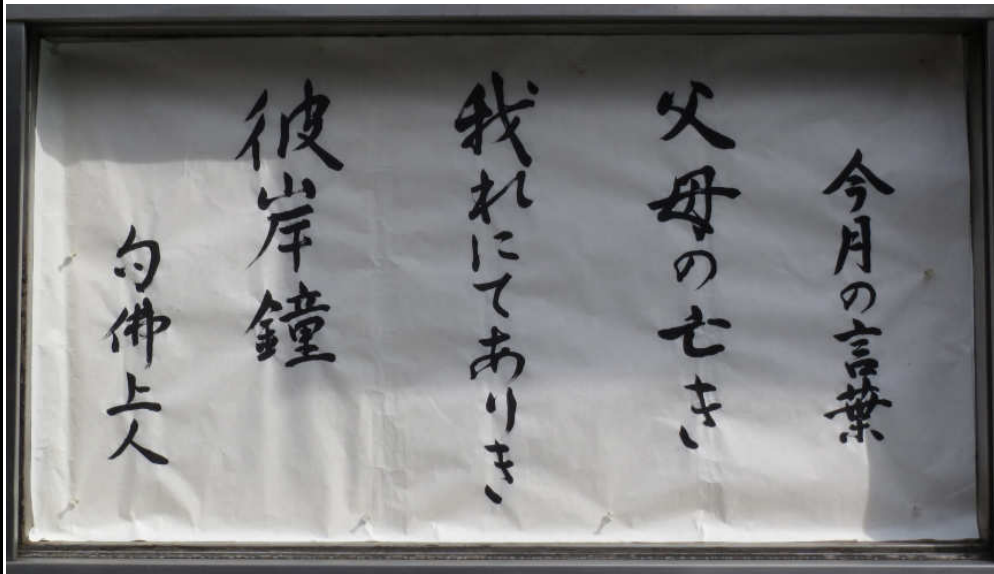 今月の言葉
父母の亡き
我れにてありき
彼岸鐘
句佛上人